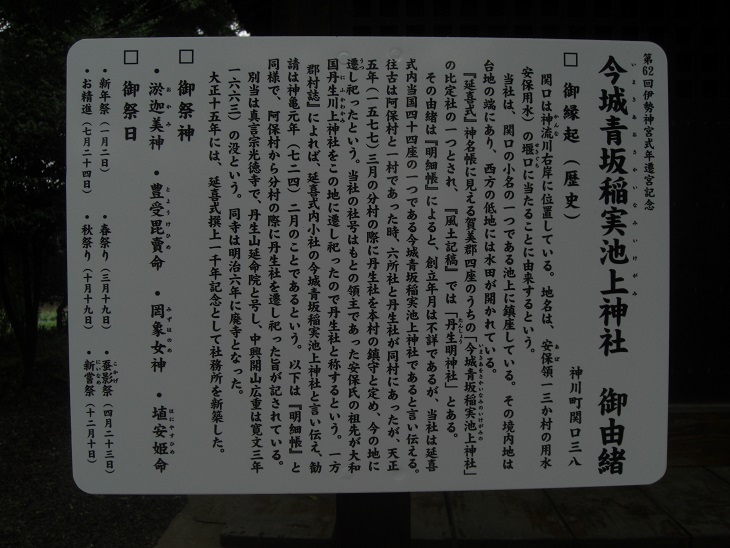 第62回伊勢神宮式年遷宮記念
今城青坂稲実池上神社　御由緒
神川町関口三八
□ 御縁起（歴史）
関口は神流川右岸に位置している。地名は、安保領一三か村の用水
安保用水）の堰口に当たることに由来するという。
当社は、関口の小名の一つである池上に鎮座している。その境内地は
台地の端にあり、西方の低地には水田が開かれている。
『延喜式』神名帳に見える賀美郡四座のうちの「今城青坂稲実池上神社」
の比定社の一つとされ、『風土記稿』では「丹生明神社」とある。
その由緒は『明細帳』によると、創立年月は不詳であるが、当社は延喜
式内当国四十四座の一つである今城青坂稲実池上神社であると言い伝える。
往古は阿保村と一村であった時、六所社と丹生社が同村にあったが、天正
五年（一五七七）三月の分村の際に丹生社を本村の鎮守と定め、今の地に
遷し祀ったという。当社の社号はもとの領主であった安保氏の祖先が大和
国丹生川上神社をこの地に遷し祀ったので丹生社と称するという。一方
『郡村誌』によれば、延喜式内小社の今城青坂稲実池上神社と言い伝え、勧
請は神亀元年（七二四）二月のことであるという。以下は『明細帳』と
同様で、阿保村から分村の際に丹生社を遷し祀った旨が記されている。
別当は真言宗光徳寺で、丹生山延命院と号し、中興開山広重は寛文三年
一六六三）の没という。同寺は明治六年に廃寺となった。
大正十五年には、延喜式撰上一千年記念として社務所を新築した。
□ 御祭神
・淤迦美神　・豊受毘賣命　・罔象女神　・埴安姫命
□ 御祭日
・新年祭（一月二日）　・春祭り（三月十九日）　・蚕影祭（四月二十三日）
・お精進（七月二十四日）　・秋祭り（十月十九日）　・新嘗祭（十二月十日）